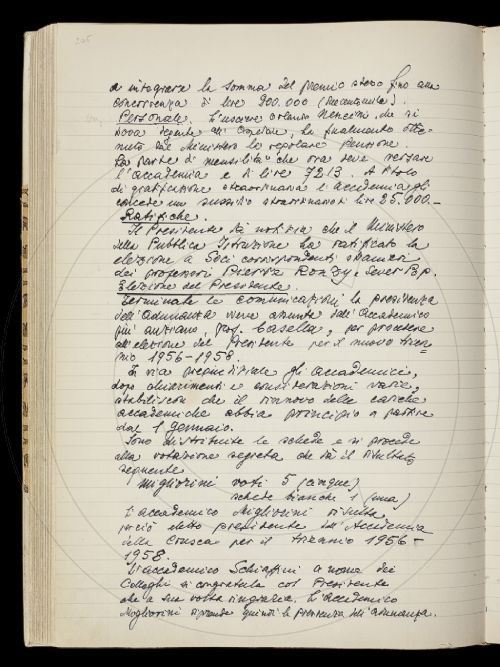 a integrare la somma del premio stesso fino alla
concorrenza di lire 200.000 (duecentomila).
Personale. L'usciere Orlando Nencini, che si
trova degente all'Ospedale, ha finalmente otte-
nuto dal Ministero la regolare pensione.
La parte di mensilità che ora deve versare
l'Accademia è di lire 7213. A titolo
di gratificazione straordinaria l'Accademia gli
concede un sussidio straordinario di lire 25.000.-
Ratifiche.
Il Presidente dà notizia che il Ministero
della Pubblica Istruzione ha ratificato la
elezione a Soci corrispondenti stranieri
dei professori Pierre Ronzy e Sever Pop.
Elezione del Presidente.
Terminate le comunicazioni la presidenza
dell'adunanza viene assunta dall'Accademico
più anziano, Prof. Casella, per procedere
all'elezione del Presidente per il nuovo trien-
nio 1956-1958.
In via pregiudiziale gli accademici,
dopo chiarimenti e considerazioni varie,
stabiliscono che il rinnovo delle cariche
accademiche abbia principio a partire
dal 1 gennaio.
Sono distribuite le schede e si procede
alla votazione segreta che dà il risultato
seguente
Migliorini voti 5 (cinque)
schede bianche 1 (una)
L'accademico Migliorini risulta
perciò eletto presidente dell'Accademia
della Crusca per il triennio 1956-
1958.
L'accademico Schiaffini a nome dei
Colleghi si congratula col Presidente
che a sua volta ringrazia. L'accademico
Migliorini riprende quindi la Presidenza dell'adunanza.